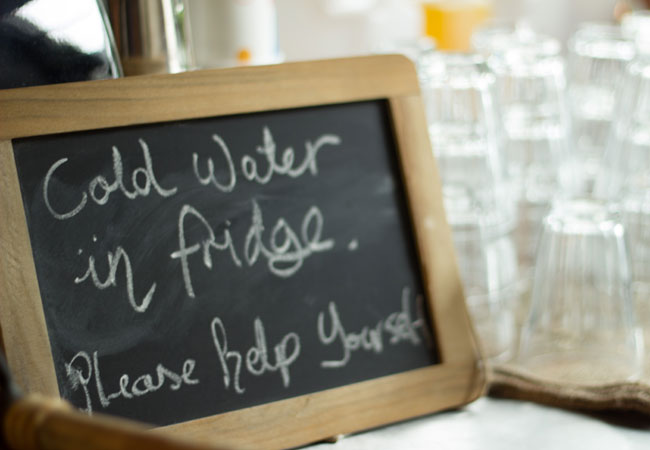 Cold Water
in fridge.
Please help Yourself